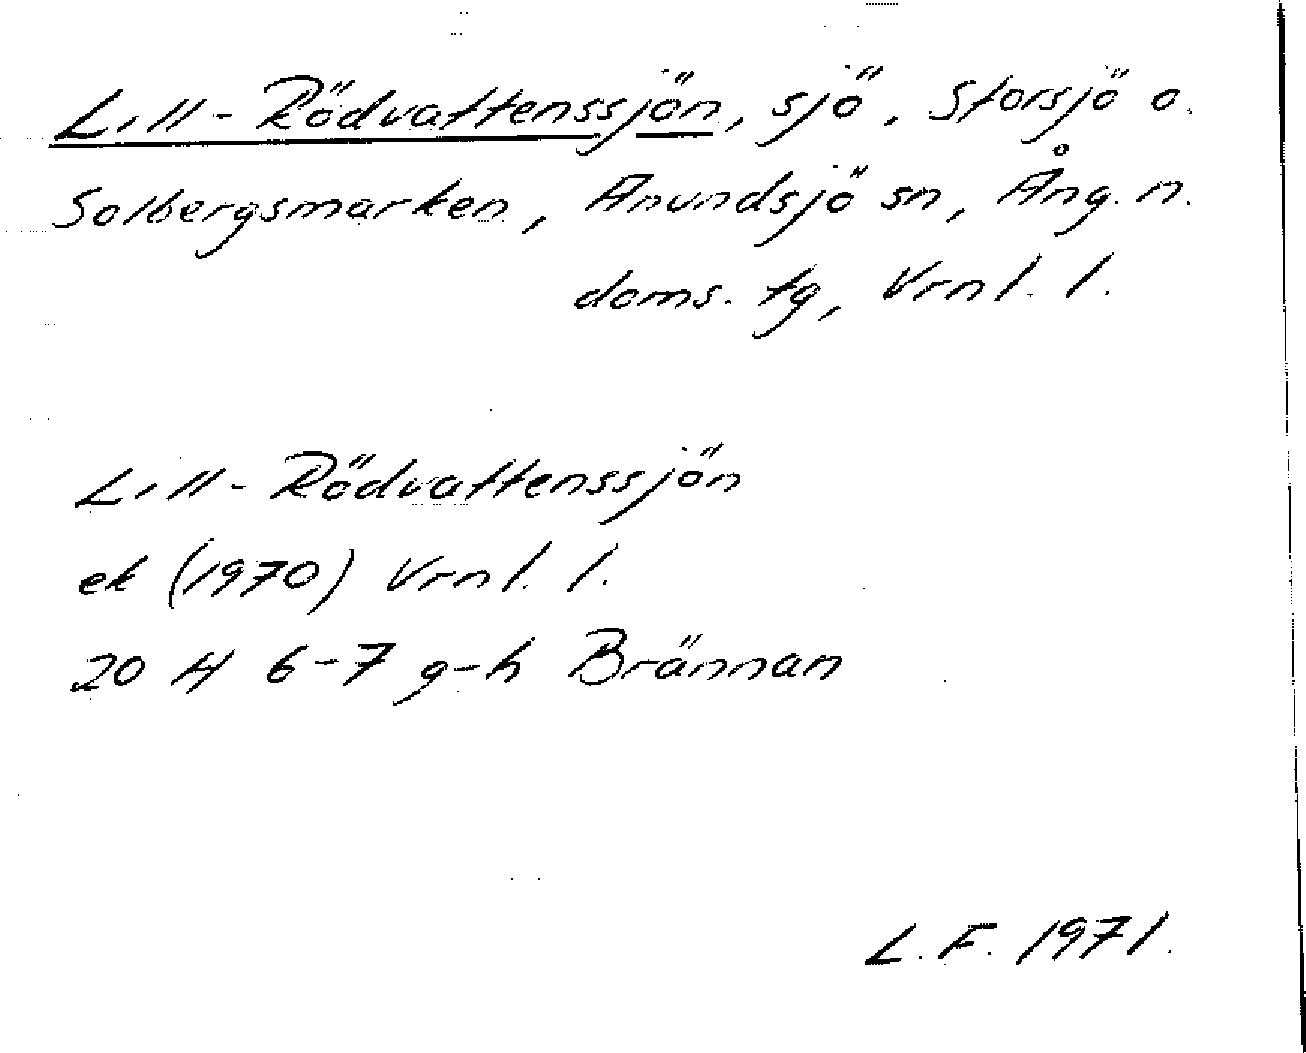 Lill-Rödvattenssjön, sjö, Storsjö o.
Solbergsmarken, Anundsjö sn, Ång. n.
doms. tg, Vrnl. l.
Lill-Rödvattenssjön
ek (1970) Vrnl. l.
20 H 6-7 g-h Brännan
L. F. 1971.